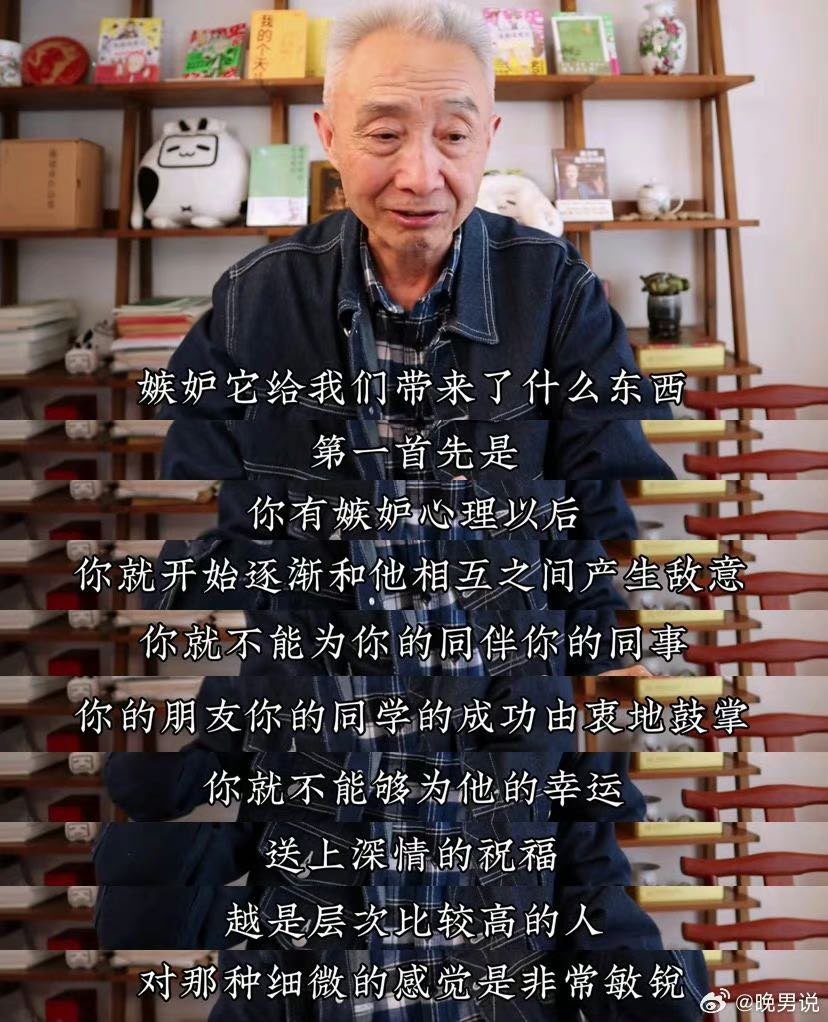 我的个天
嫉妒它给我们带来了什么东西
第一首先是
你有嫉妒心理以后
你就开始逐渐和他相互之间产生敌意
你就不能为你的同伴你的同事
你的朋友你的同学的成功由衷地鼓掌
你就不能够为他的幸运
送上深情的祝福
越是层次比较高的人
对那种细微的感觉是非常敏锐
@晚男说